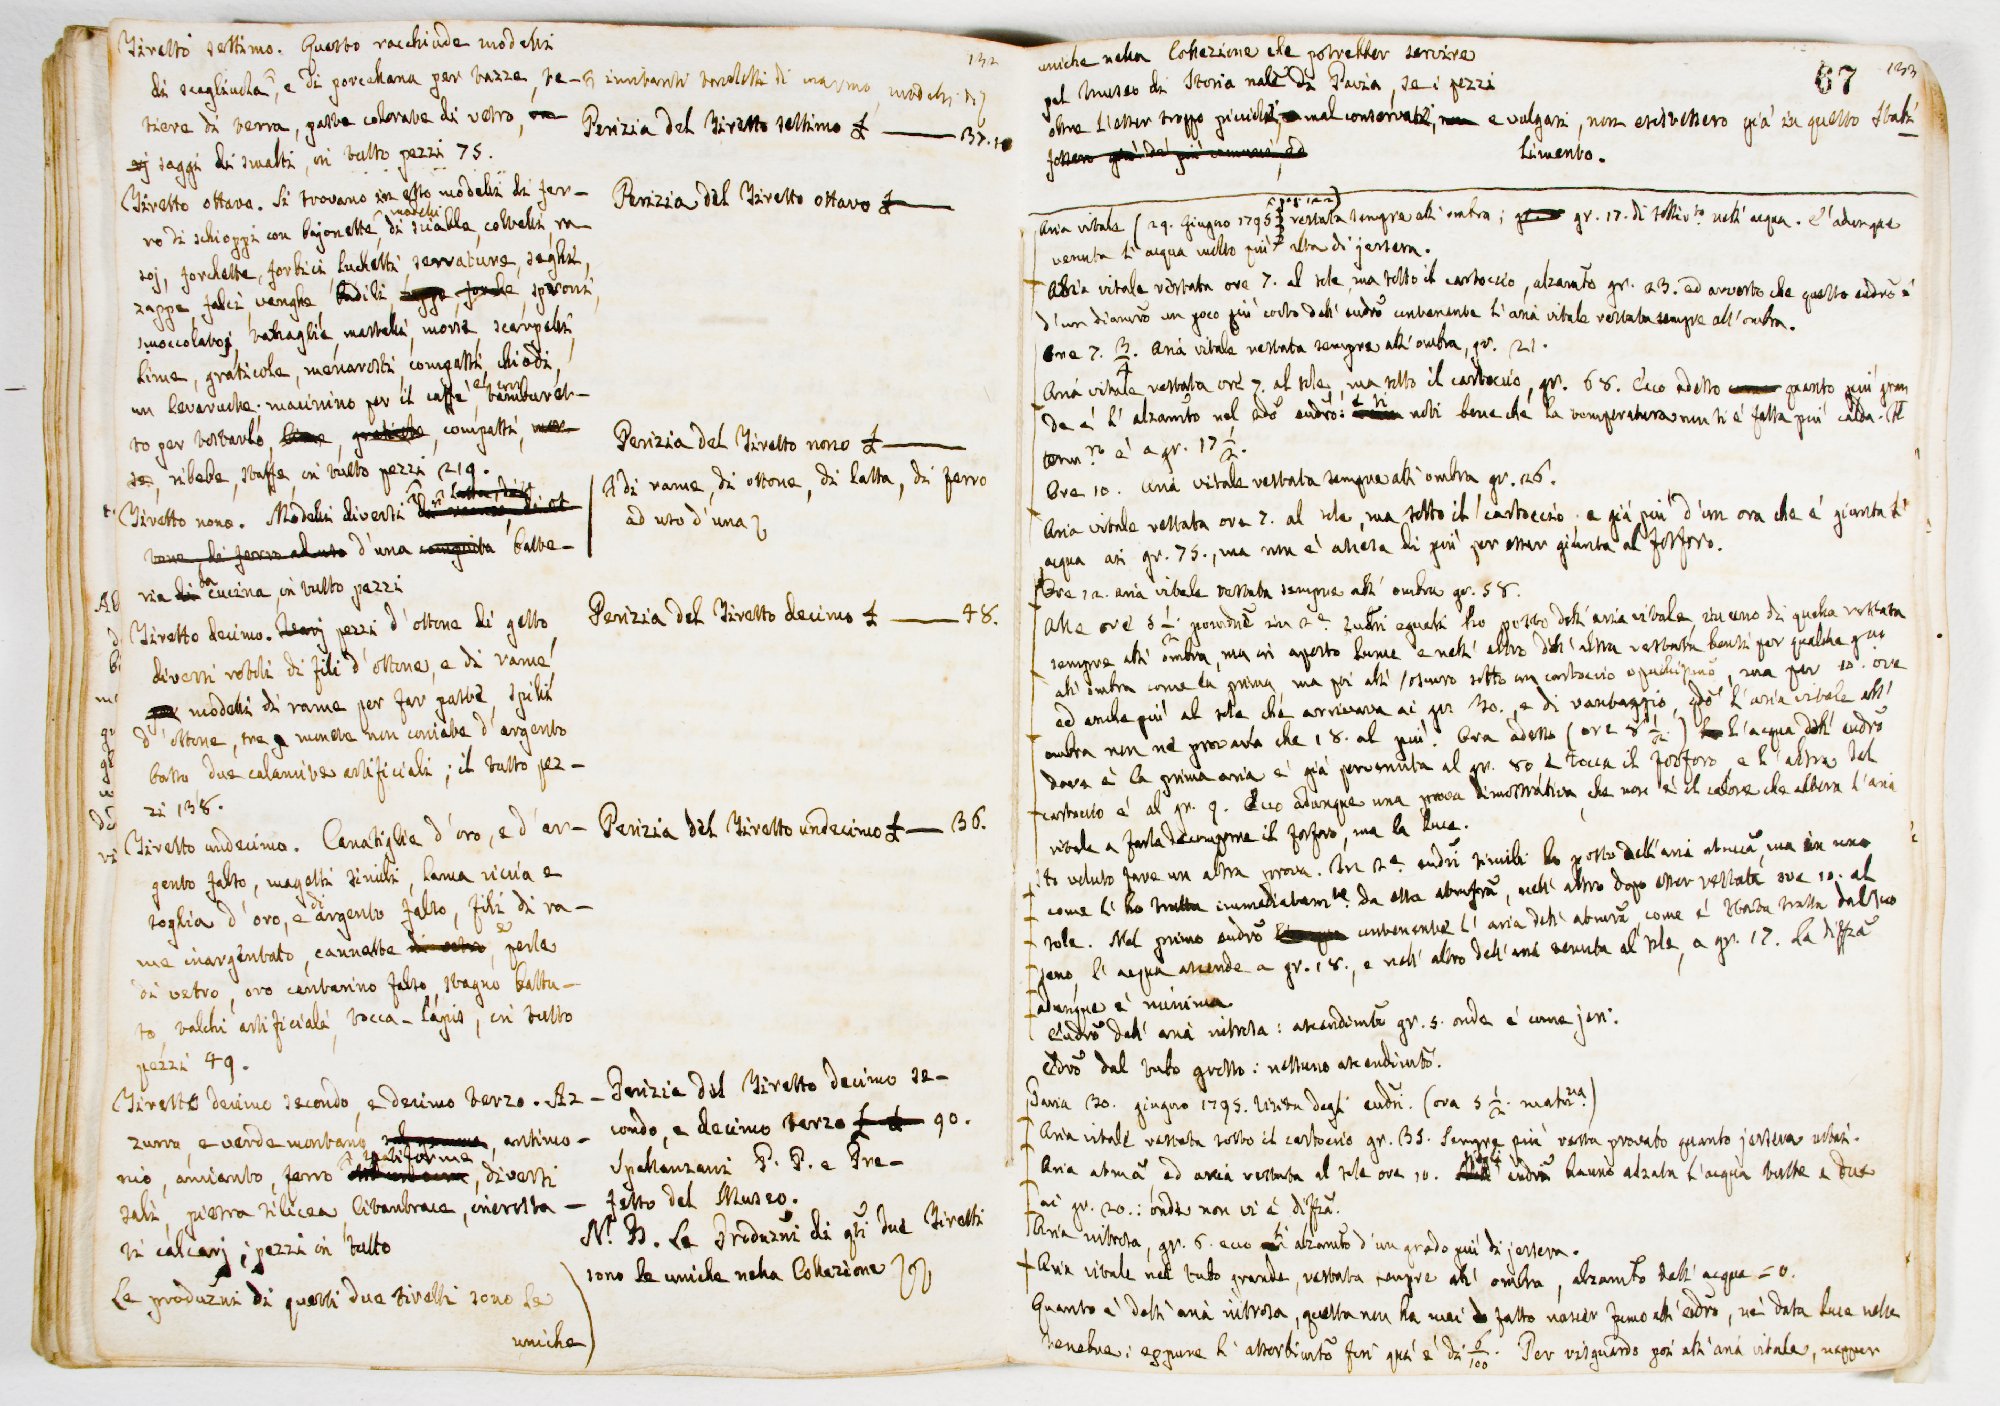 132
Tiretto settimo. Questo racchiude modelli
di scagliuola, e di porcellana per tazze, te-
imitanti tavoletti di marmo, modelli di
tiere di terra, paste colorate di vetro,
Perizia del Tiretto settimo £ — 37.10
saggi di smalti, in tutto pezzi 75.
Tiretto ottavo. Si trovano in esso modelli di fer-
Perizia del Tiretto ottavo £ —
ro di schioppi con bajonette, di sciable, coltelli, ra-
soj, forchette, forbici, luchetti, serrature, seghe,
zappe, falci, vanghe, badili, speroni,
smoccolatoj, tanaglie, martelli, morse, scarpelli,
lime, graticole, menarosti, compassi, chiodi,
un levaruche, macinino per il caffè, tamburet-
to per tostarlo, compassi,
Perizia del Tiretto nono £ —
ribebe, staffe, in tutto pezzi 219.
Tiretto nono. Modelli diversi
di rame, di ottone, di latta, di ferro
ad uso d'una
d'una batte-
ria da cucina, in tutto pezzi
Tiretto decimo. pezzi d'ottone di getto,
Perizia del Tiretto decimo £ — 48.
diversi rotoli di fili d'ottone, e di rame,
modelli di rame per far paste, spilli
d'ottone, tre monete non coniate d'argento
basso, due calamite artificiali; il tutto pez-
zi 138.
Tiretto undecimo. Canatiglie d'oro, e d'ar-
Perizia del Tiretto undecimo £ — 36.
gento falso, magetti simili, lama riccia e
foglia d'oro, e d'argento falso, fili di ra-
me inargentato, cannette, e perle
di vetro, oro cantarino falso, stagno battu-
to, talchi artificiali, tocca-lapis, in tutto
pezzi 49.
Tiretto decimo secondo, e decimo terzo. Az-
Perizia del Tiretto decimo se-
condo, e decimo terzo £ 90.
zurro, e verde montano, antimo-
nio, amianto, ferro, diversi
Spallanzani P. P. e Pre-
fetto del Museo.
sali, pietra silicea, litantrace, incrosta-
ti calcarj; pezzi in tutto
N.B. Le Produzni di qti due Tiretti
sono le uniche nella Collezione
Le produzni di questi due tiretti sono le
uniche
67 133
uniche nella Collezione che potrebber servire
pel Museo di Storia nale di Pavia, se i pezzi
oltre l'esser troppo piccioli, mal conservati, e vulgari, non esistessero già in questo Stabi-
fossero già de' più comuni, ed
limento.
Aria vitale (29. Giugno 1795 restata sempre all'ombra; gr. 17. di nell'acqua. E' adunque
venuta l'acqua molto più alta di jersera.
Aria vitale restata ore 7. al sole, ma sotto il cartoccio, alzamto gr. 23. ed avverto che questo eudro è
d'un diamro un poco più corto dell'eudro contenente l'aria vitale restata sempre all'ombra.
Ore 7. 3/4. Aria vitale restata sempre all'ombra, gr. 21.
Aria vitale restata ore 7. al sole, ma sotto il cartoccio, gr. 68. Ecco adesso quanto più gran
de è l'alzamto nel 2do eudro: e si noti bene che la temperatura non si è fatta più calda. Il
term.ro è a gr. 17 1/2.
Ore 10. Aria vitale restata sempre all'ombra gr. 26.
Aria vitale restata ore 7. al sole, ma sotto il cartoccio, e già più d'un ora che è giunta l'
acqua ai gr. 75., ma non è ascesa di più per esser giunta al fosforo.
Ore 12. aria vitale restata sempre all'ombra gr. 58.
Alle ore 5 1/2. in 2e eudri eguali ho posto dell'aria vitale, in uno di quella restata
sempre all'ombra, ma in aperto lume e nell'altro dell'altra restata bensì per qualche
all'ombra come la prima, ma poi all'oscuro sotto un cartoccio, ma per 10. ore
ed anche più al sole che arrivava ai gr. 30., e di vantaggio, l'aria vitale all'
ombra non ne provava che 18. al più. Ora adesso (ore 8 1/2.) l'acqua dell'eudro
dove è la prima aria è già pervenuta al gr. 80 e tocca il fosforo e l'altra del
cartoccio è al gr. 9. Ecco adunque una prova dimostrativa, che non è il calore che altera l'aria
vitale a farle decomporre il fosforo, ma la luce.
Ho voluto fare un altra prova. In 2e eudri simili ho posto dell'aria, ma in uno
come l'ho tratta immediatamte da essa, nell'altro dopo esser restata ore 10. al
sole. Nel primo eudro contenente l'aria dell', come è stata tratta dal suo
seno, l'acqua ascende a gr. 18., e nell'altro dell'aria tenuta al sole, a gr. 17. La diffza
adunque è minima.
Eudro dell'aria nitrosa: ascendimto gr. 5. onde è come jeri.
Eudro dal tubo grosso: nessuno ascendimto.
Pavia 30. giugno 1795. Visita degli eudri. (ora 5 1/2. matina)
Aria vitale restata sotto il cartoccio gr. 35. Sempre più resta provato quanto jersera
Aria atmca, ed aria restata al sole ore 10. eudri hanno alzata l'acqua tutte e due
ai gr. 20.: onde non vi è diffza.
Aria nitrosa, gr. 6. ecco alzamto d'un grado più di jersera.
Aria vitale nel tubo grande, restata sempre all'ombra, alzamto dell'acqua = 0.
Quanto è dell'aria nitrosa, questa non ha mai fatto nascer fumo all'eudro, nè data luce nelle
tenebre: eppure l'assorbimto fin quì è di 6/100. Per risguardo poi all'aria vitale, neppur